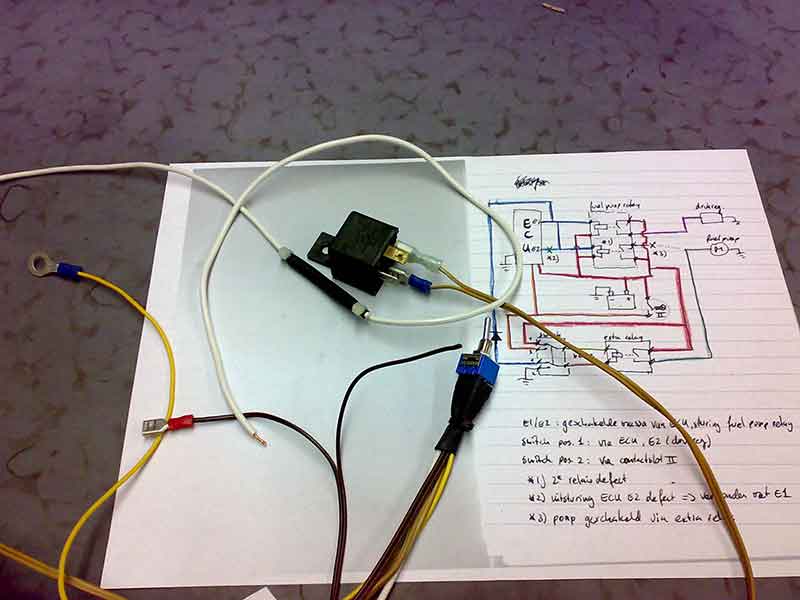 fuel pump relay
drukreg.
fuel pump
E E1
C
U E2
*1)
*2)
*3)
M
II
switch
extra relay
E1/E2 : geschakelde massa van ECU, sturing fuel pump relay
Switch pos. 1 : via ECU, E2 (drukreg)
Switch pos. 2 : via contactslot II
*1) 2e relais defect
*2) uitsturing ECU E2 defect => verbonden met E1
*3) pomp geschakeld via extra